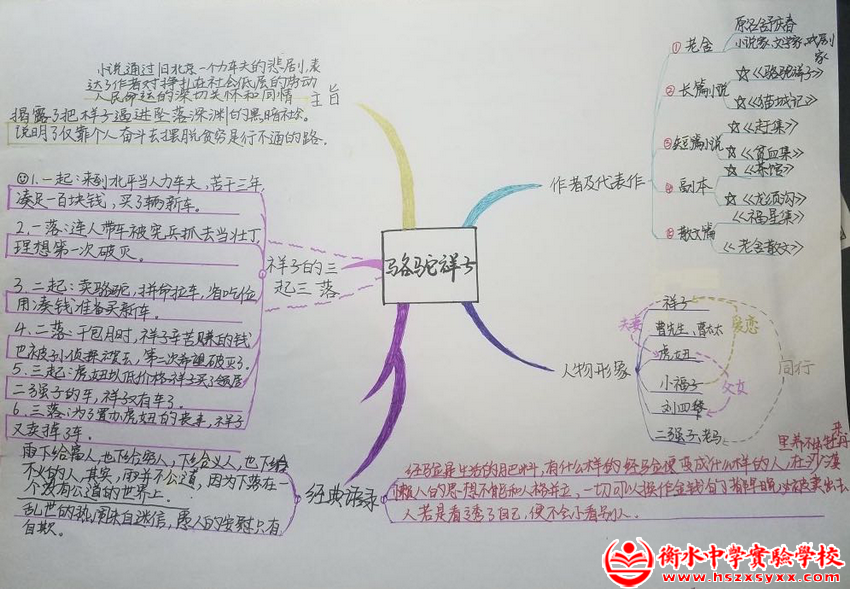 小说通过旧北京一个人力车夫的悲剧,表
达了作者对挣扎在社会低层的劳动
人民命运的深切关怀和同情
揭露了把样子逼进坠落深渊的黑暗社会。
说明了仅靠个人奋斗去摆脱贫穷是行不通的路。
主旨
1.一起:来到北平当人力车夫,苦干三年,
凑足一百块钱,买了辆新车。
2.一落:连人带车被宪兵抓去当壮丁
理想第一次破灭。
3.二起:卖骆驼,拼命拉车,省吃俭
用凑钱准备买新车。
4.二落:干包月时,祥子辛苦赚的钱
也被孙侦探骗去,第二次希望破灭了。
5.三起:虎妞以低价给祥子买了邻居
二强子的车,祥子又有车了。
6.三落:为了置办虎妞的丧事,祥子
又卖掉了车。
祥子的三
起三落
骆驼祥子
雨下给富人,也下给穷人,下给义人,也下给
不义的人,其实,雨并不公道,因为下落在一
个没有公道的世界上.
乱世的热闹来自迷信,愚人的安慰只有
自欺。
经典语录
经验是生活的肥料,有什么样的经验便变成什么样的人,在沙漠
里养不出牡丹来
懒人的思想不能和人格并立,一切可以换作金钱的都早晚必被卖出去
人若是看透了自己,便不会小看别人.
作者及代表作
① 老舍
原名舒庆春
小说家,文学家,戏剧
家
② 长篇小说
☆《骆驼祥子》
☆《猫城记》
③ 短篇小说
☆《赶集》
☆《贫血集》
④ 剧本
☆《茶馆》
☆《龙须沟》
⑤ 散文篇
《福星集》
《老舍散文》
人物形象
祥子
曹先生、曹太太
虎妞
小福子
刘四爷
二强子、老马
夫妻
爱恋
父女
同行
衡水中学实验学校
www.hszxsyxx.com